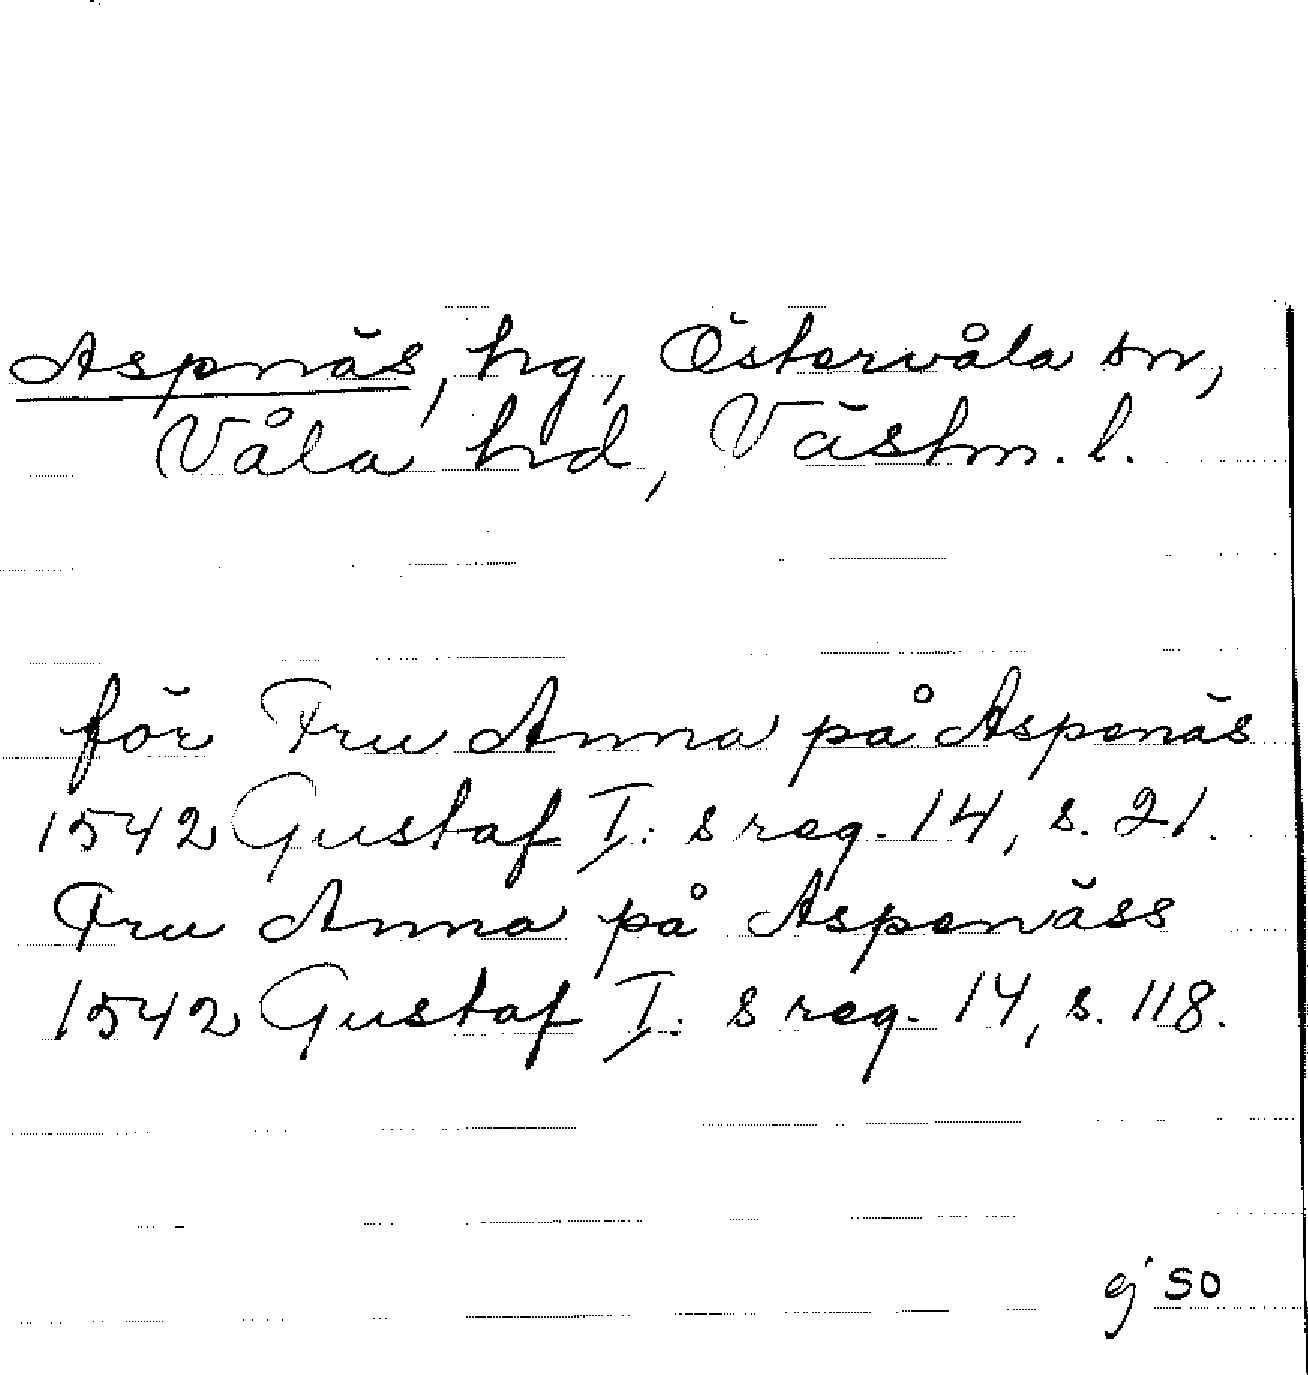 Aspnäs, hg, Östervåla sn,
Våla hd, Västm. l.
för Fru Anna på Aspenäs
1542 Gustaf I:s reg. 14, s. 21.
Fru Anna på Aspenäss
1542 Gustaf I:s reg. 14, s. 118.
ej SO